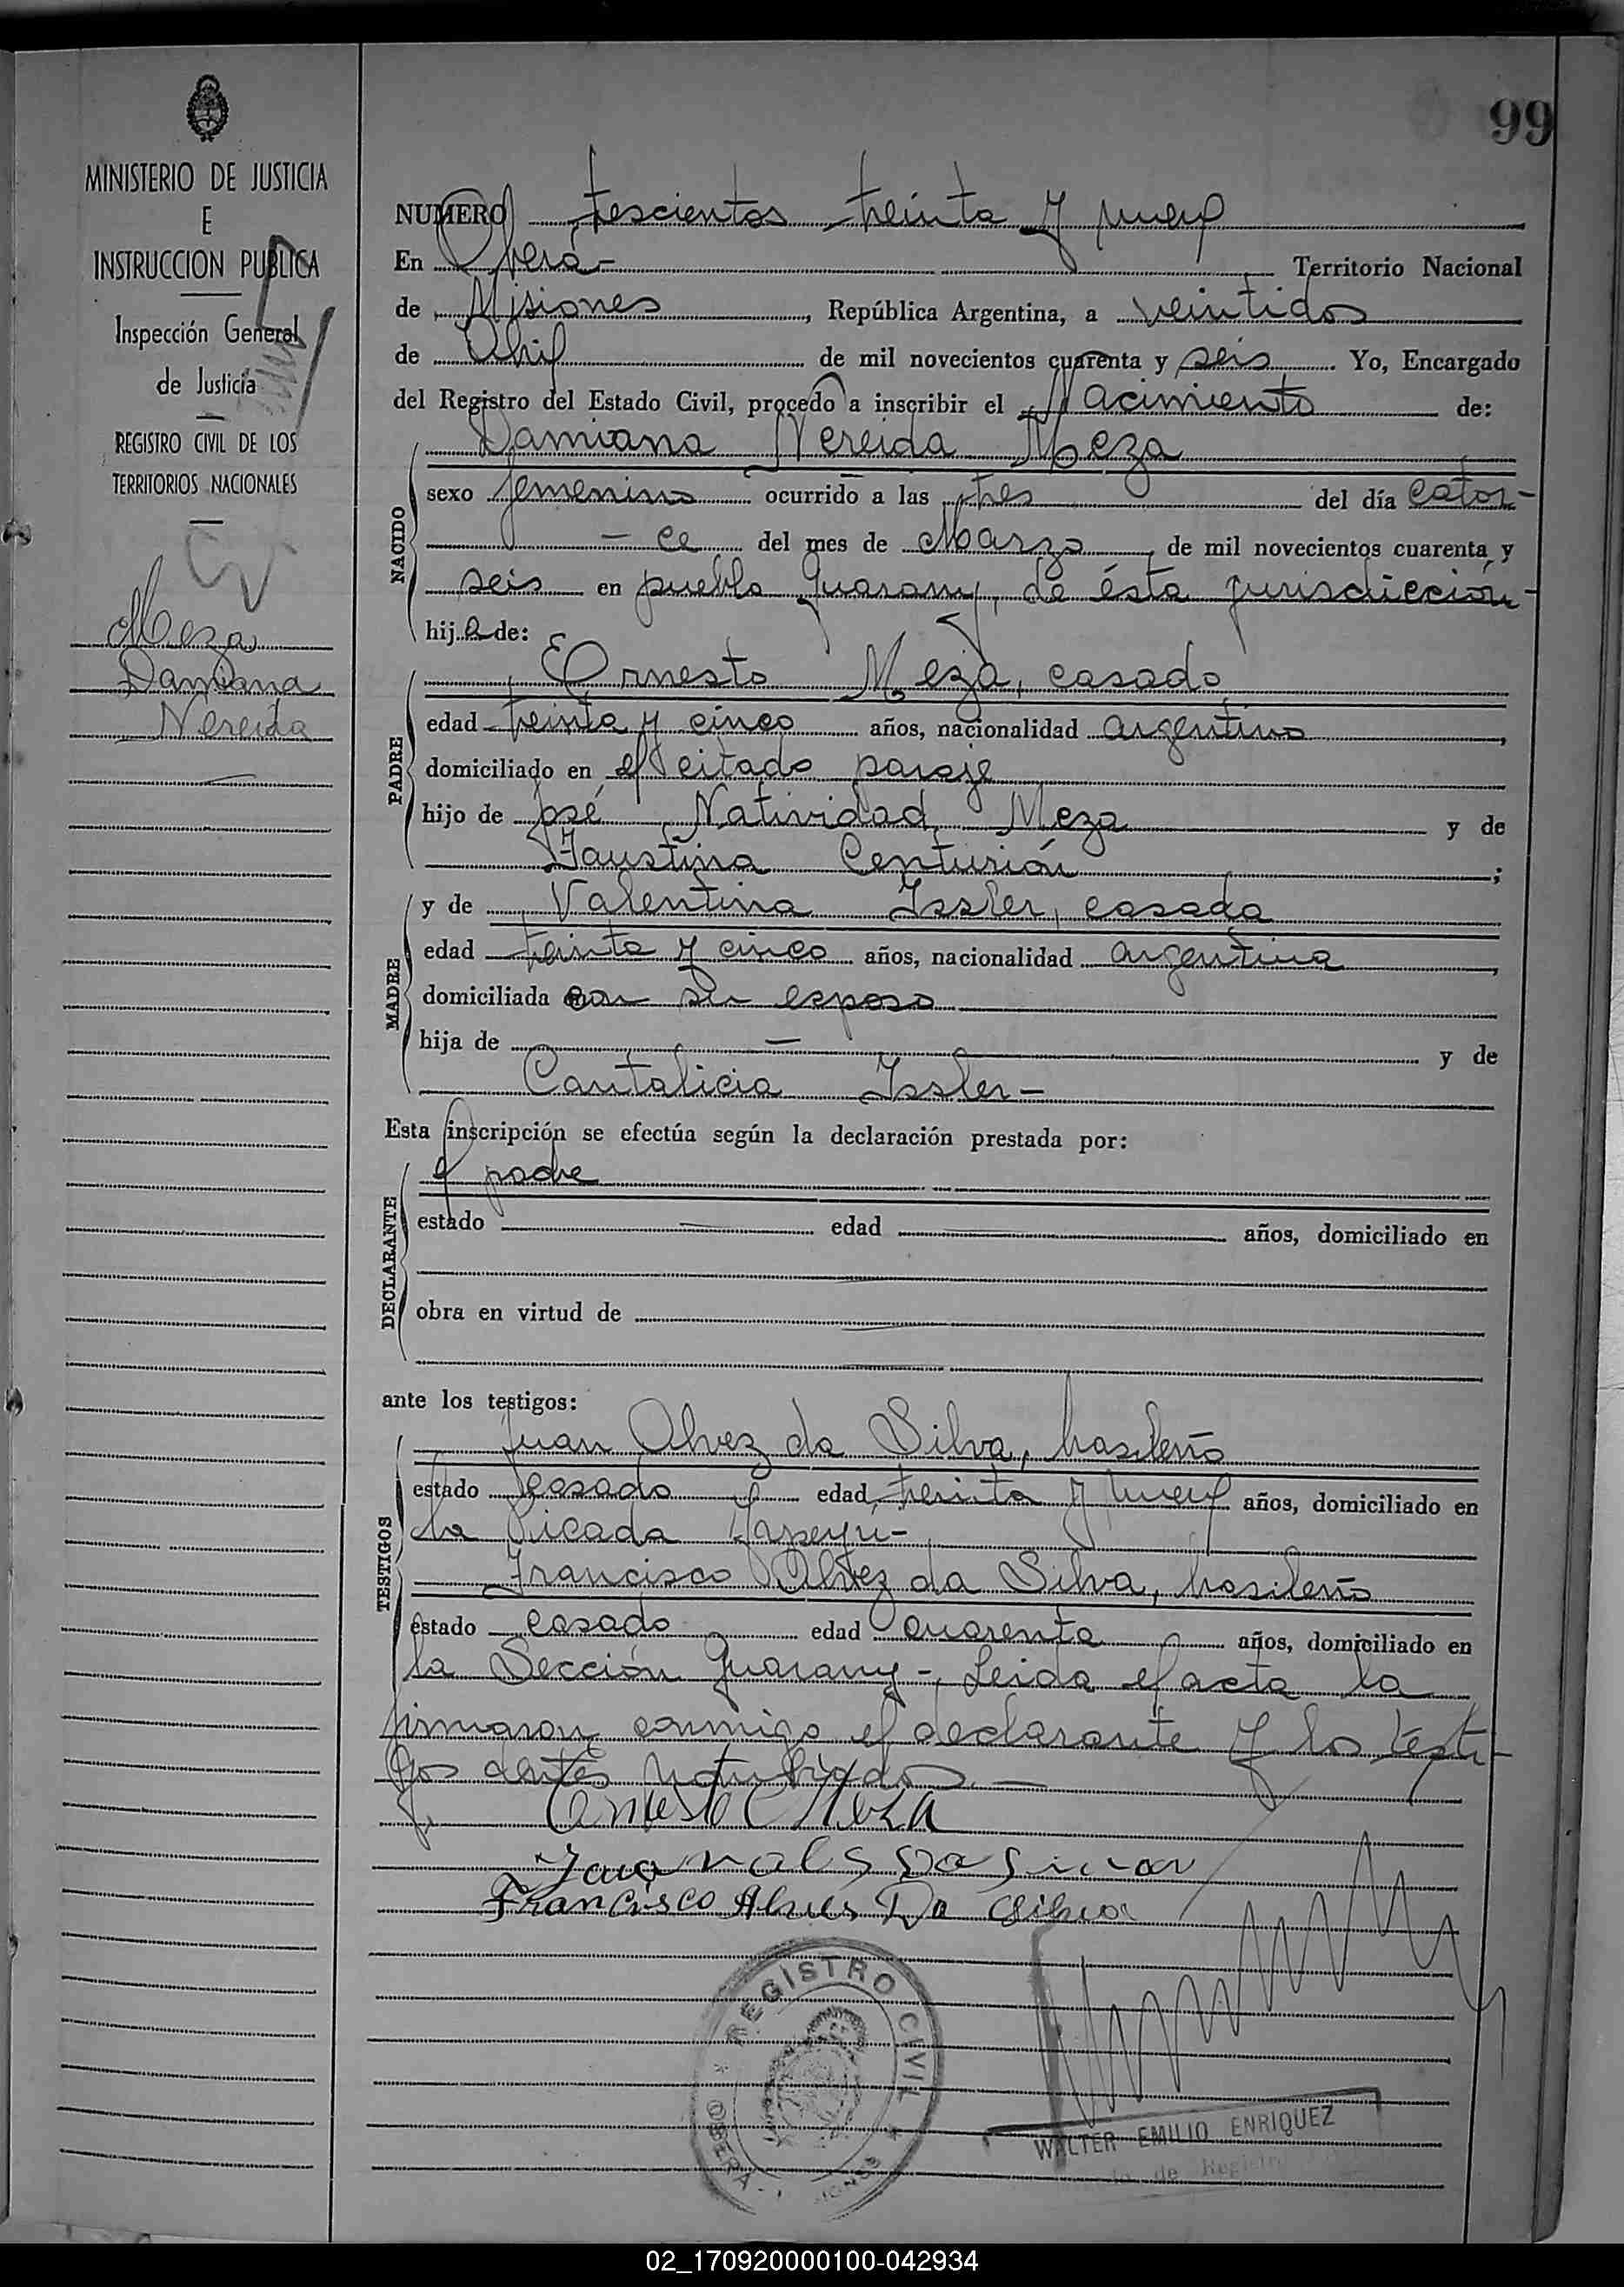 99
MINISTERIO DE JUSTICIA
E
INSTRUCCION PUBLICA
Inspección General
de Justicia
REGISTRO CIVIL DE LOS
TERRITORIOS NACIONALES
Meza
Damiana
Nereida
NUMERO trescientos treinta y nueve
En Oberá- Territorio Nacional
de Misiones, República Argentina, a veintidos
de Abril de mil novecientos cuarenta y seis. Yo, Encargado
del Registro del Estado Civil, procedo a inscribir el Nacimiento de:
Damiana Nereida Meza
NACIDO
sexo femenino ocurrido a las tres del día cator-
- ce del mes de Marzo, de mil novecientos cuarenta y
seis en pueblo Guarany, de ésta jurisdicción-
hija de:
Ernesto Meza, casado
PADRE
edad treinta y cinco años, nacionalidad argentino,
domiciliado en el citado paraje
hijo de José Natividad Meza y de
Faustina Centurión;
MADRE
y de Valentina Issler, casada
edad treinta y cinco años, nacionalidad argentina,
domiciliada con su esposo
hija de — y de
Cantalicia Issler-
Esta inscripción se efectúa según la declaración prestada por:
el padre
DECLARANTE
estado edad años, domiciliado en
obra en virtud de
ante los testigos:
Juan Alvez da Silva, brasileño
TESTIGOS
estado casado edad treinta y nueve años, domiciliado en
la Picada Yapeyú-
Francisco Alvez da Silva, brasileño
estado casado edad cuarenta años, domiciliado en
la Sección Guarany- Leida el acta la
firmaron conmigo el declarante y los testi-
gos antes nombrados.-
Ernesto Meza
Francisco Alves Da Silva
REGISTRO CIVIL
OBERA
WALTER EMILIO ENRIQUEZ
de Registro
02_170920000100-042934